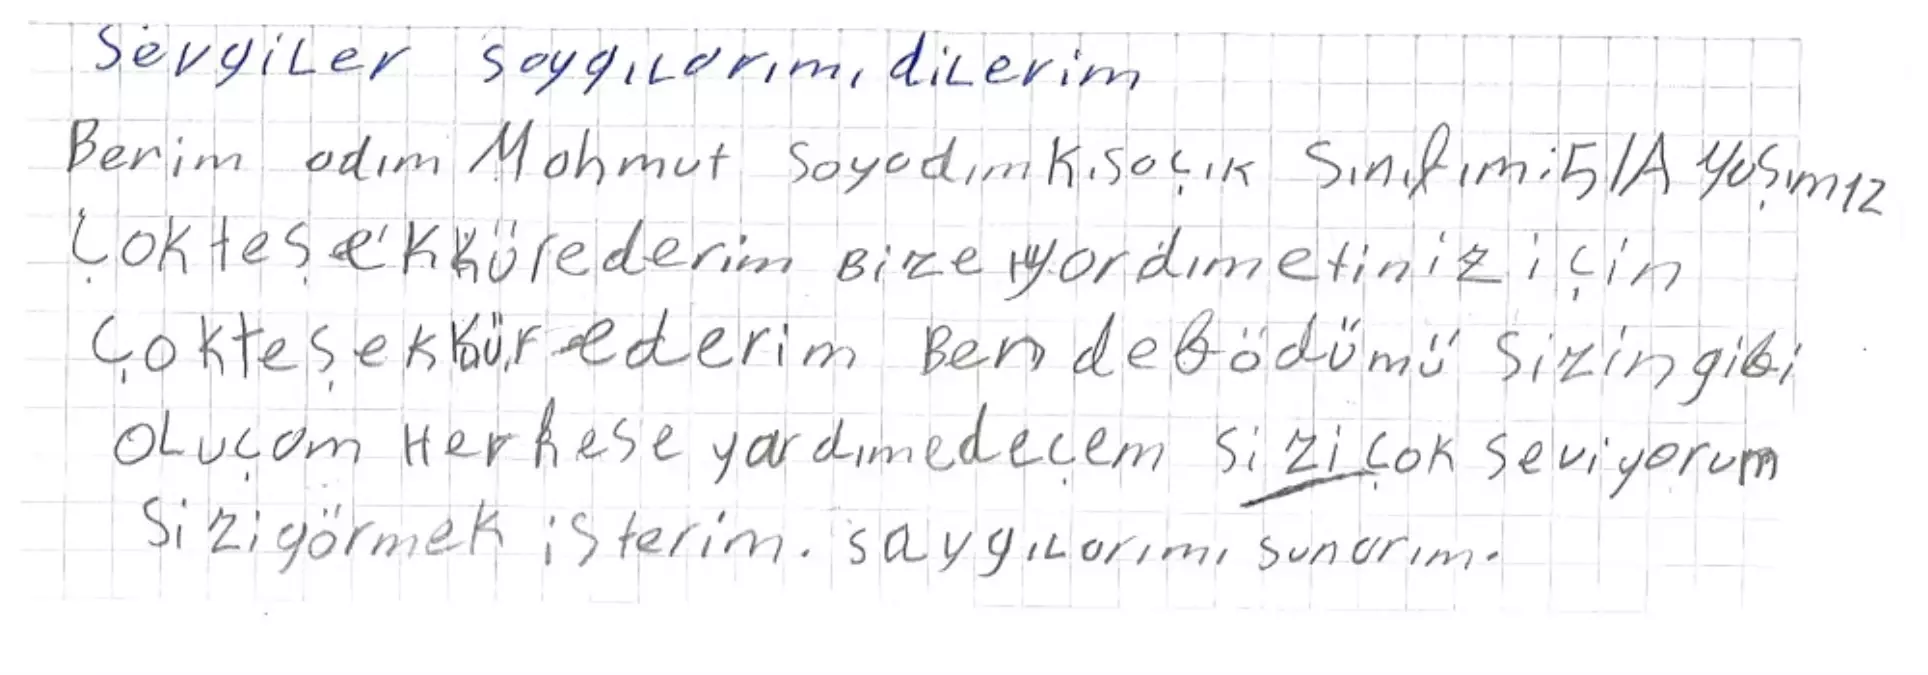 Sevgiler saygılarımı dilerim
Benim adım Mahmut Soyadım Kısaçık Sınıfım:5/A Yaşım12
Çokteşekkürederim Bize yardımetiniz için
Çokteşekkür ederim Ben debödümü Sizin gibi
Oluçam Herkese yardımedeçem Sizi çok seviyorum
Sizi görmek isterim. saygılarımı sunarım.